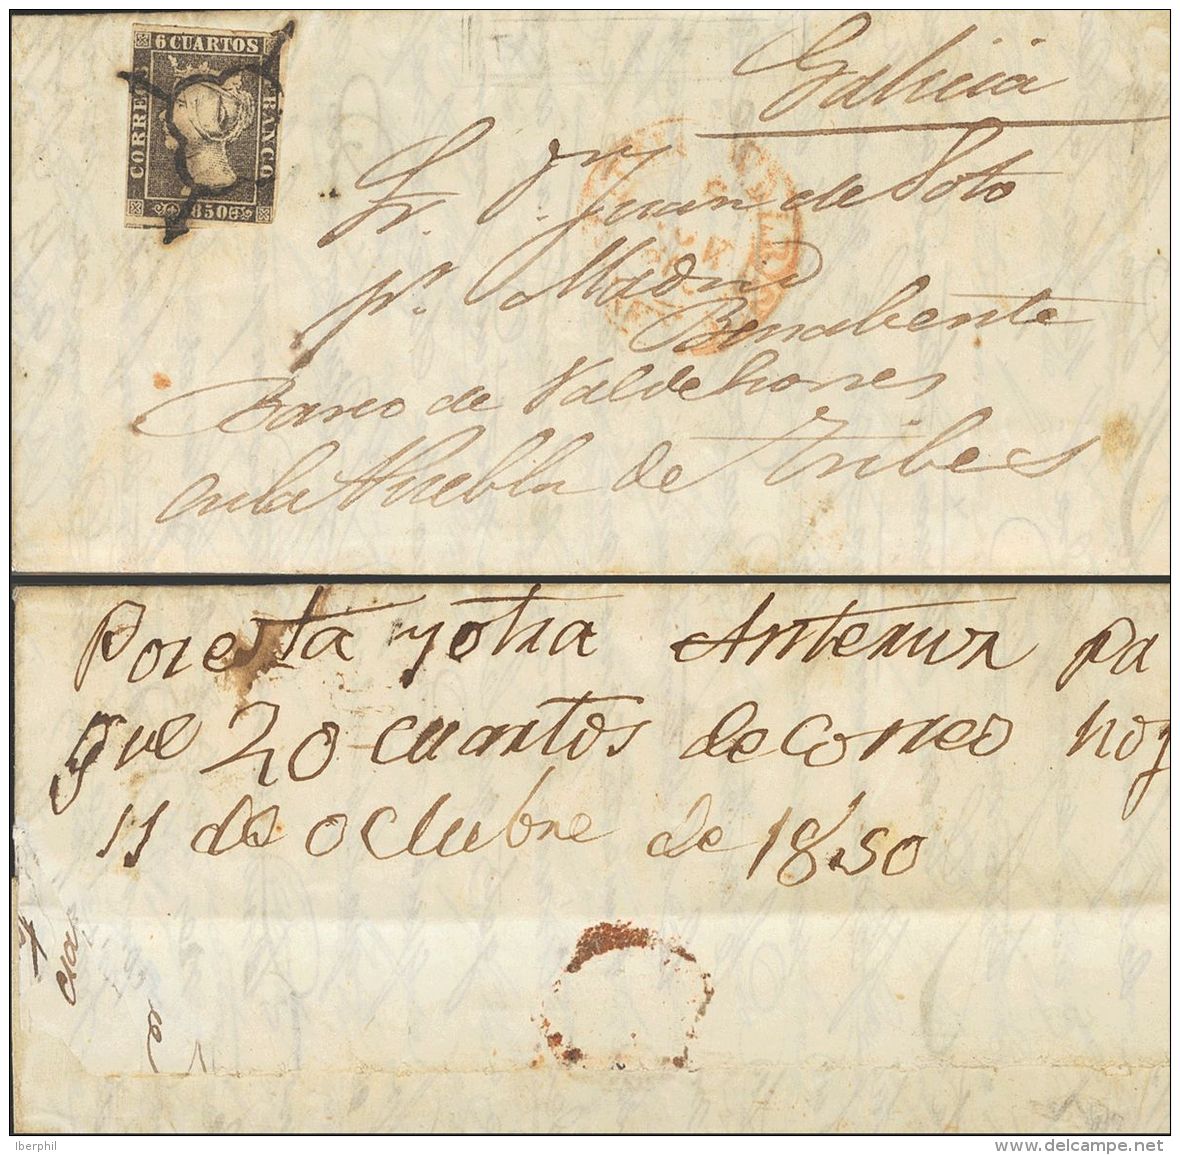 6 CUARTOS
CORREOS
FRANCO
1850
Galicia
Sr. Dn. Juan de Soto
pr. Madrid
Benabente
Barco de Valdehorres
en la Puebla de Tribes
Por esta y otra Anterior pa
gue 20 cuartos de correo hoy
11 de Octubre de 1850
Iberphil
delcampe.net